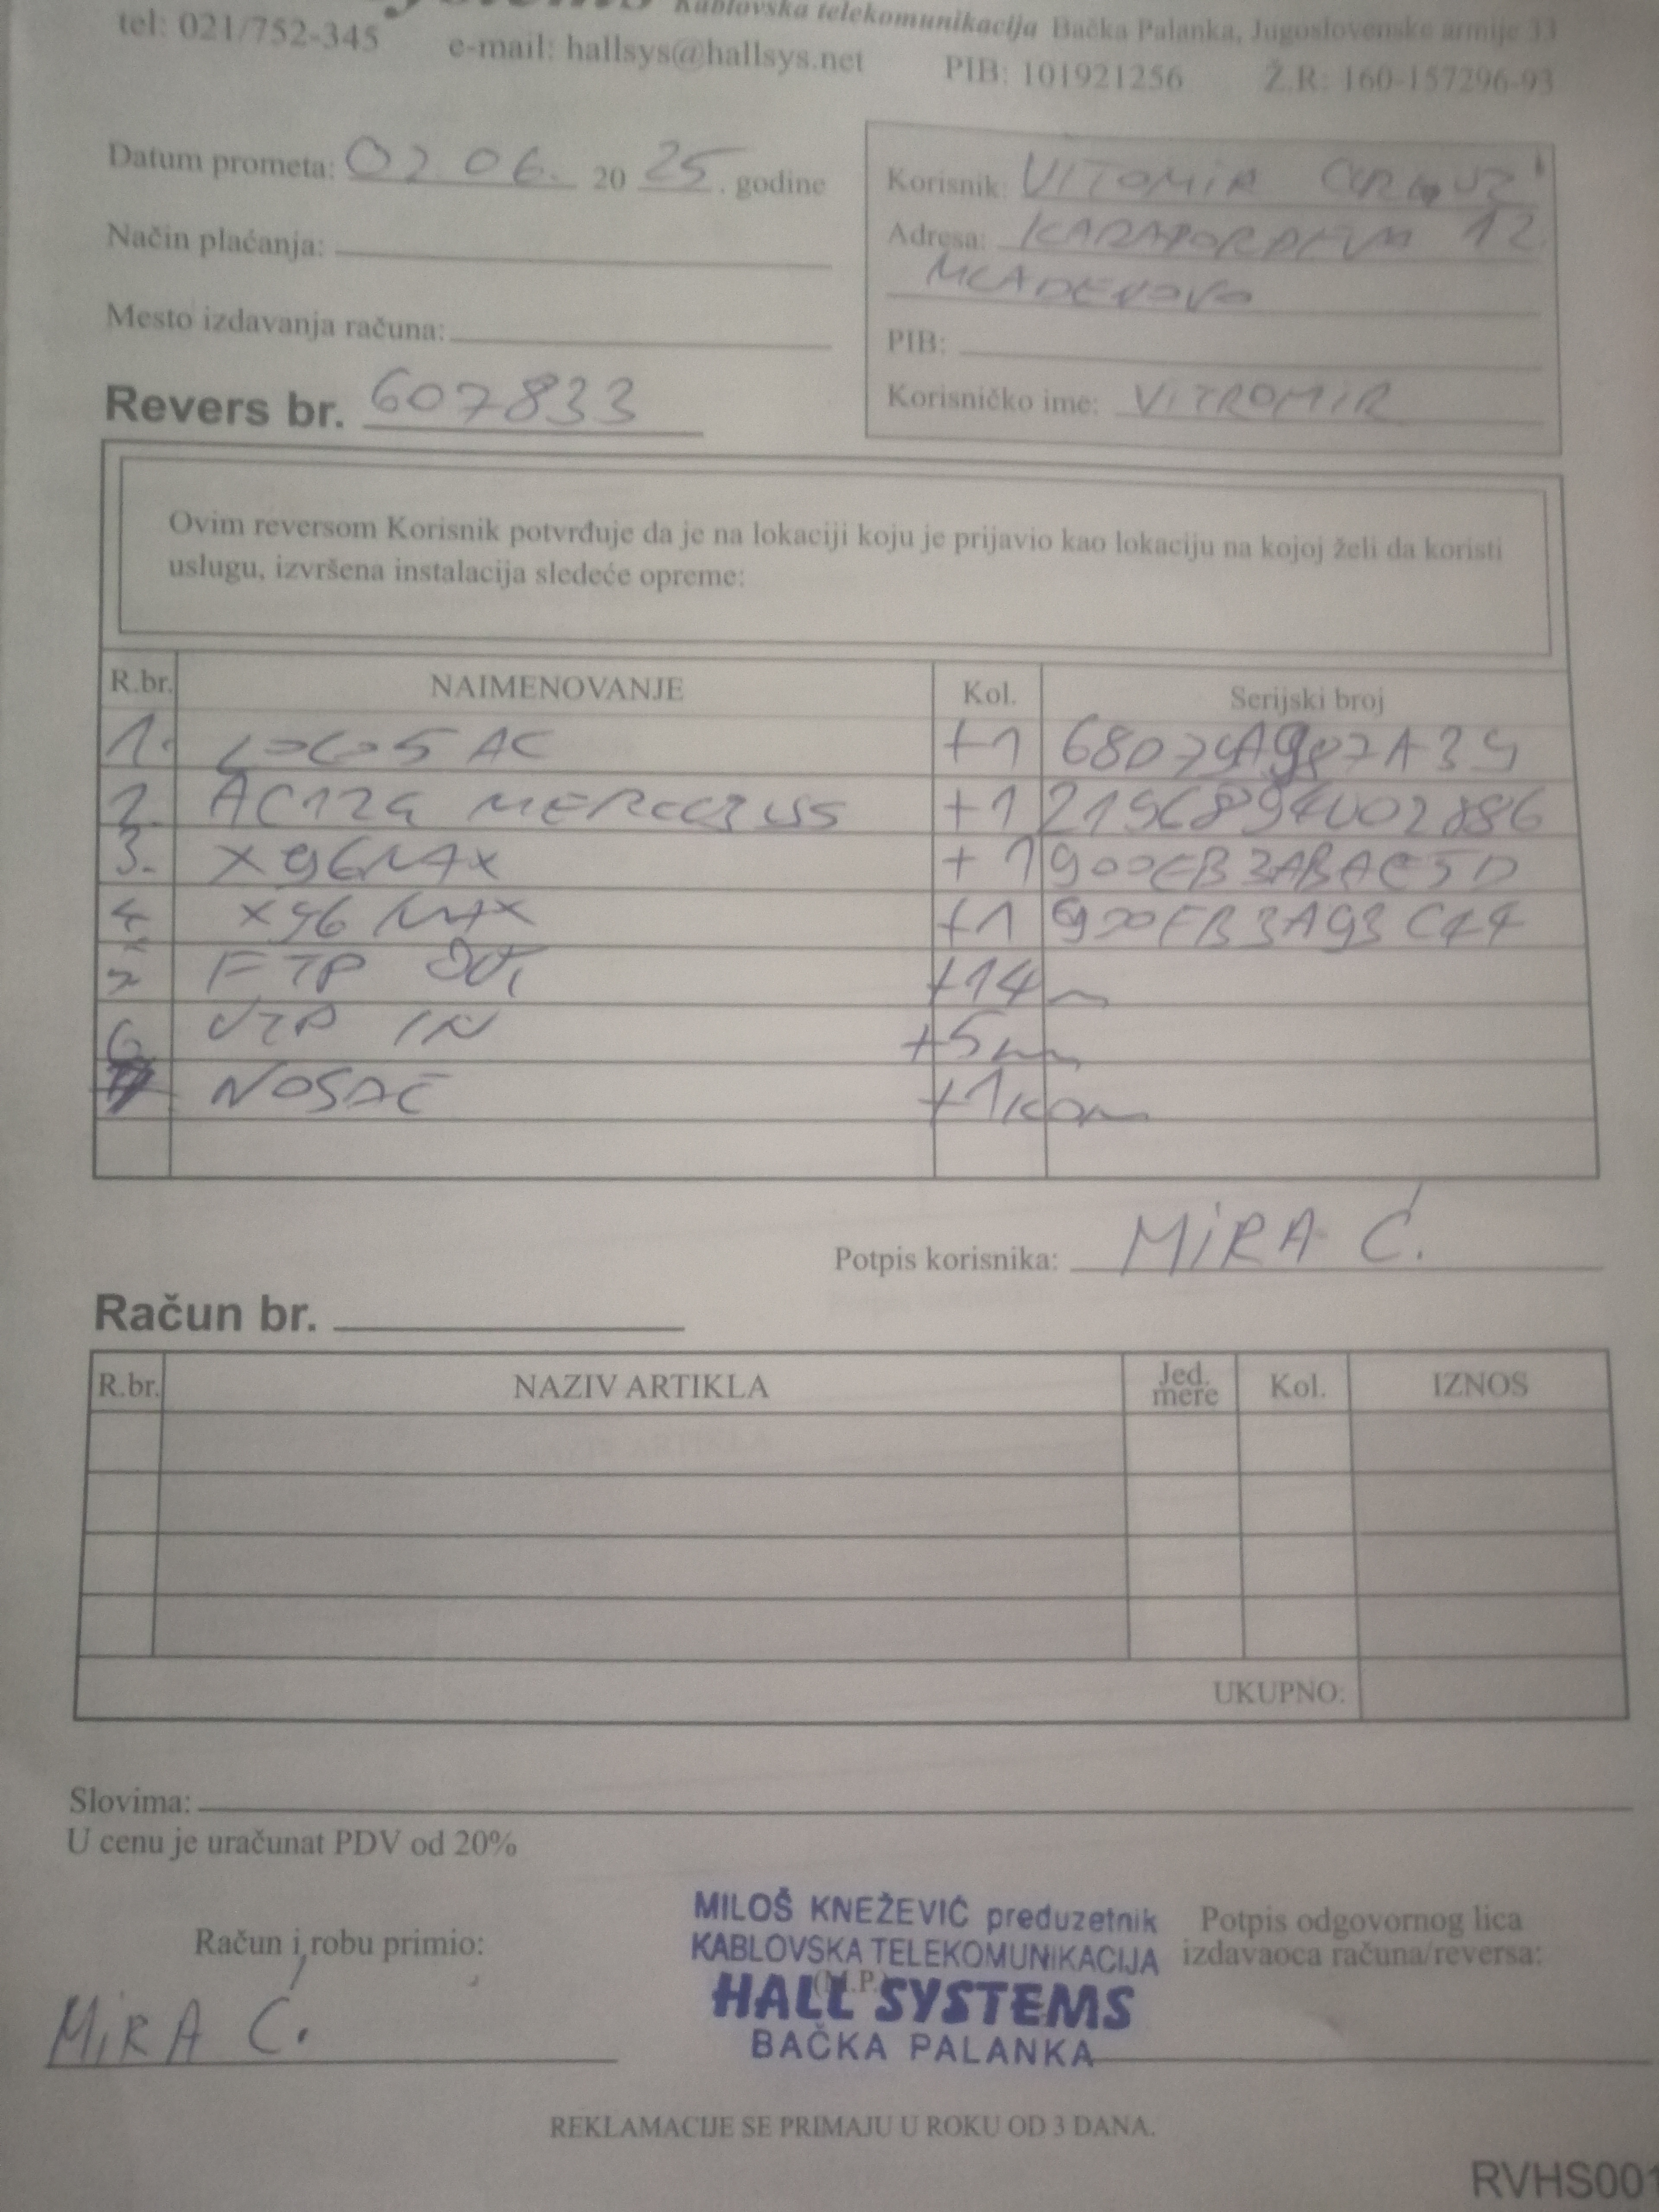 Kablovska telekomunikacija Bačka Palanka, Jugoslovenske armije 33
tel: 021/752-345 e-mail: hallsys@hallsys.net PIB: 101921256 Ž.R: 160-157296-93
Datum prometa: 02.06. 2025. godine
Način plaćanja:
Mesto izdavanja računa:
Revers br. 607833
Korisnik: VITOMIR
Adresa: 12
MLADENOVO
PIB:
Korisničko ime: VITROMIR
Ovim reversom Korisnik potvrđuje da je na lokaciji koju je prijavio kao lokaciju na kojoj želi da koristi
uslugu, izvršena instalacija sledeće opreme:
R.br. NAIMENOVANJE Kol. Serijski broj
1. LOCO5 AC +1
2. AC12G MERCUSYS +1
3. X96MAX +1
4 X96 MAX +1
FTP OUT +14m
6 UTP IN +5m
NOSAČ +1kom
Potpis korisnika: MIRA Ć.
Račun br.
R.br. NAZIV ARTIKLA Jed. mere Kol. IZNOS
UKUPNO:
Slovima:
U cenu je uračunat PDV od 20%
Račun i robu primio:
MIRA Ć.
MILOŠ KNEŽEVIĆ preduzetnik
KABLOVSKA TELEKOMUNIKACIJA
(M.P.)
HALL SYSTEMS
BAČKA PALANKA
Potpis odgovornog lica
izdavaoca računa/reversa:
REKLAMACIJE SE PRIMAJU U ROKU OD 3 DANA.
RVHS001